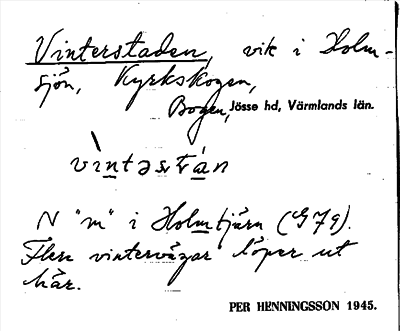 Vinterstaden, vik i Holm-
sjön, Kyrkskogen,
Bogen, Jösse hd, Värmlands län.
vìntəstán
N "m" i Holmtjärn (G79).
Flera vintervägar löper ut
här.
PER HENNINGSSON 1945.